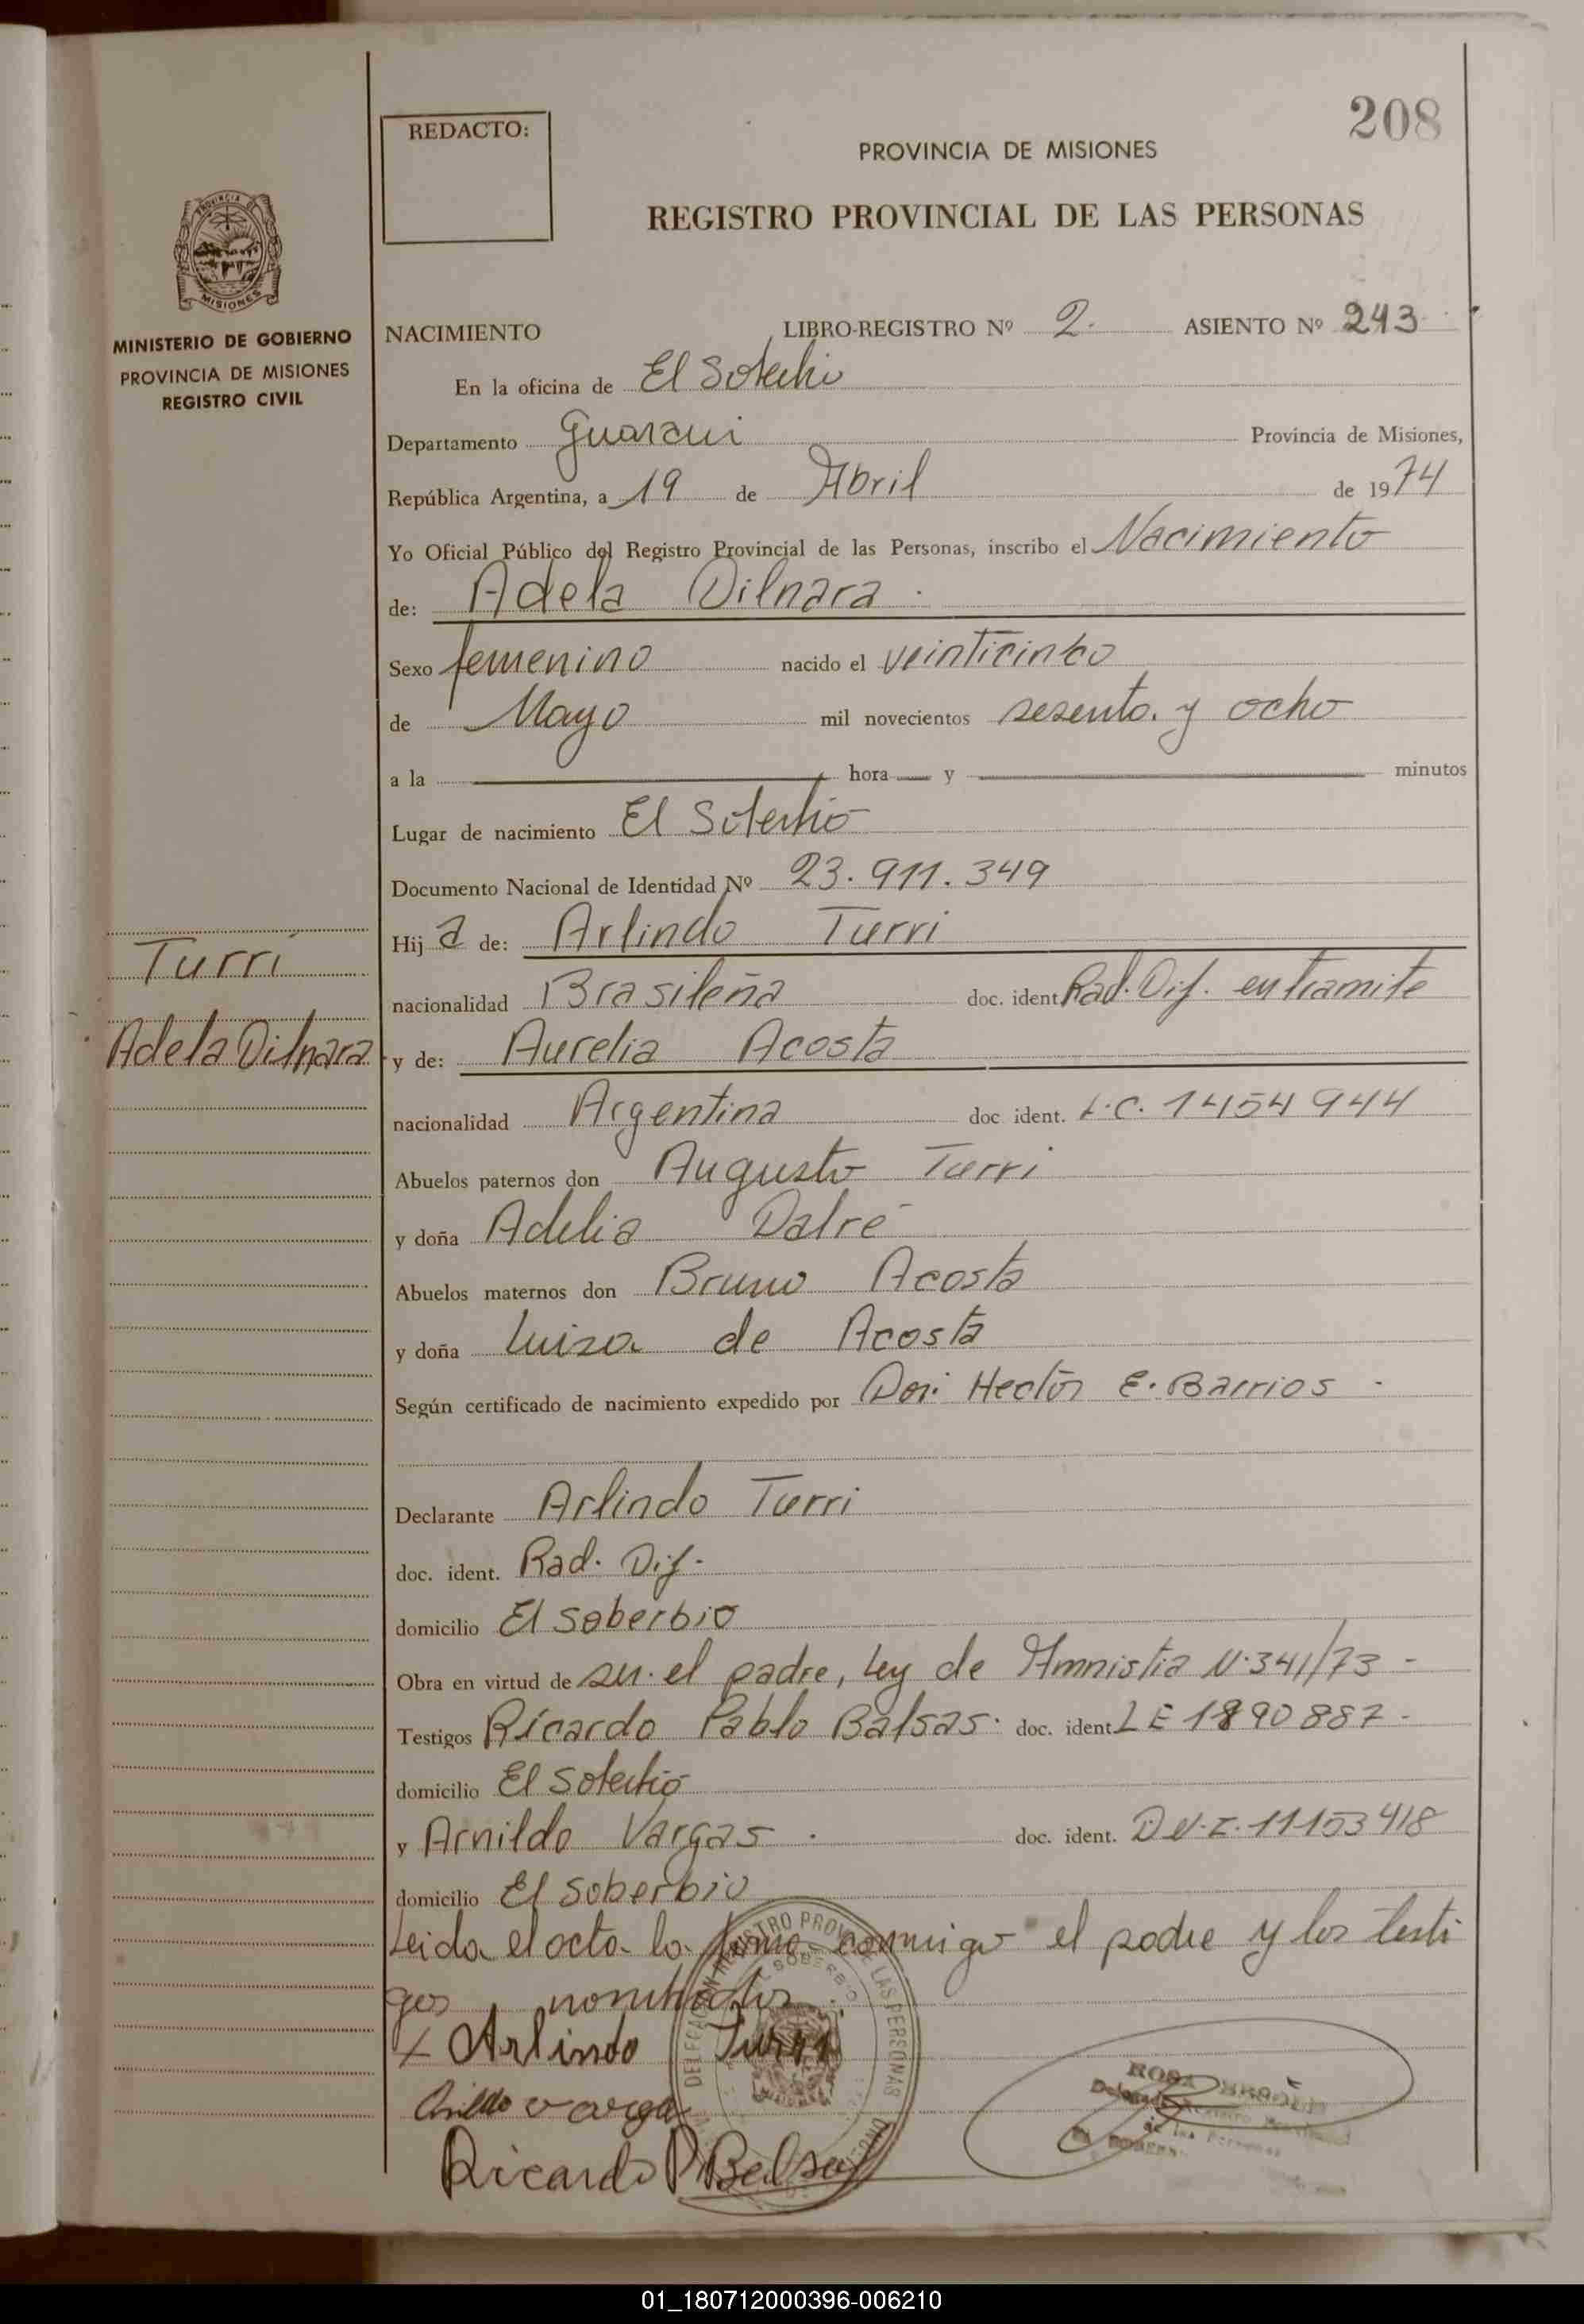 208
REDACTO:
PROVINCIA DE MISIONES
REGISTRO PROVINCIAL DE LAS PERSONAS
PROVINCIA DE
MISIONES
MINISTERIO DE GOBIERNO
PROVINCIA DE MISIONES
REGISTRO CIVIL
NACIMIENTO LIBRO-REGISTRO Nº 2. ASIENTO Nº 243
En la oficina de El Soberbio
Departamento Guarani Provincia de Misiones,
República Argentina, a 19 de Abril de 1974
Yo Oficial Público del Registro Provincial de las Personas, inscribo el Nacimiento
de: Adela Dilnara.
Sexo femenino nacido el veinticinco
de Mayo mil novecientos sesenta y ocho
a la hora y minutos
Lugar de nacimiento El Soberbio
Documento Nacional de Identidad Nº 23.911.349
Hij a de: Arlindo Turri
nacionalidad Brasileña doc. ident. Rad. Dif. en tramite
y de: Aurelia Acosta
nacionalidad Argentina doc ident. L.C. 1454944
Abuelos paternos don Augusto Turri
y doña Adelia Dalré
Abuelos maternos don Bruno Acosta
y doña Luiza de Acosta
Según certificado de nacimiento expedido por Hector E. Barrios -
Declarante Arlindo Turri
doc. ident. Rad. Dif.
domicilio El Soberbio
Obra en virtud de el padre, Ley de Amnistia N. 341/73 -
Testigos Ricardo Pablo Balsas. doc. ident. LE 1890887-
domicilio El Soberbio
y Arnildo Vargas. doc. ident. D.N.I. 11153418
domicilio El Soberbio
Leida el acta la conmigo el padre y los testi
gos nombrados
Turri
Adela Dilnara
x Arlindo Turri
vargas
Ricardo P Balsas
DELEGACION REGISTRO PROV. DE LAS PERSONAS
SOBERBIO
ROSA
de las Personas
01_180712000396-006210